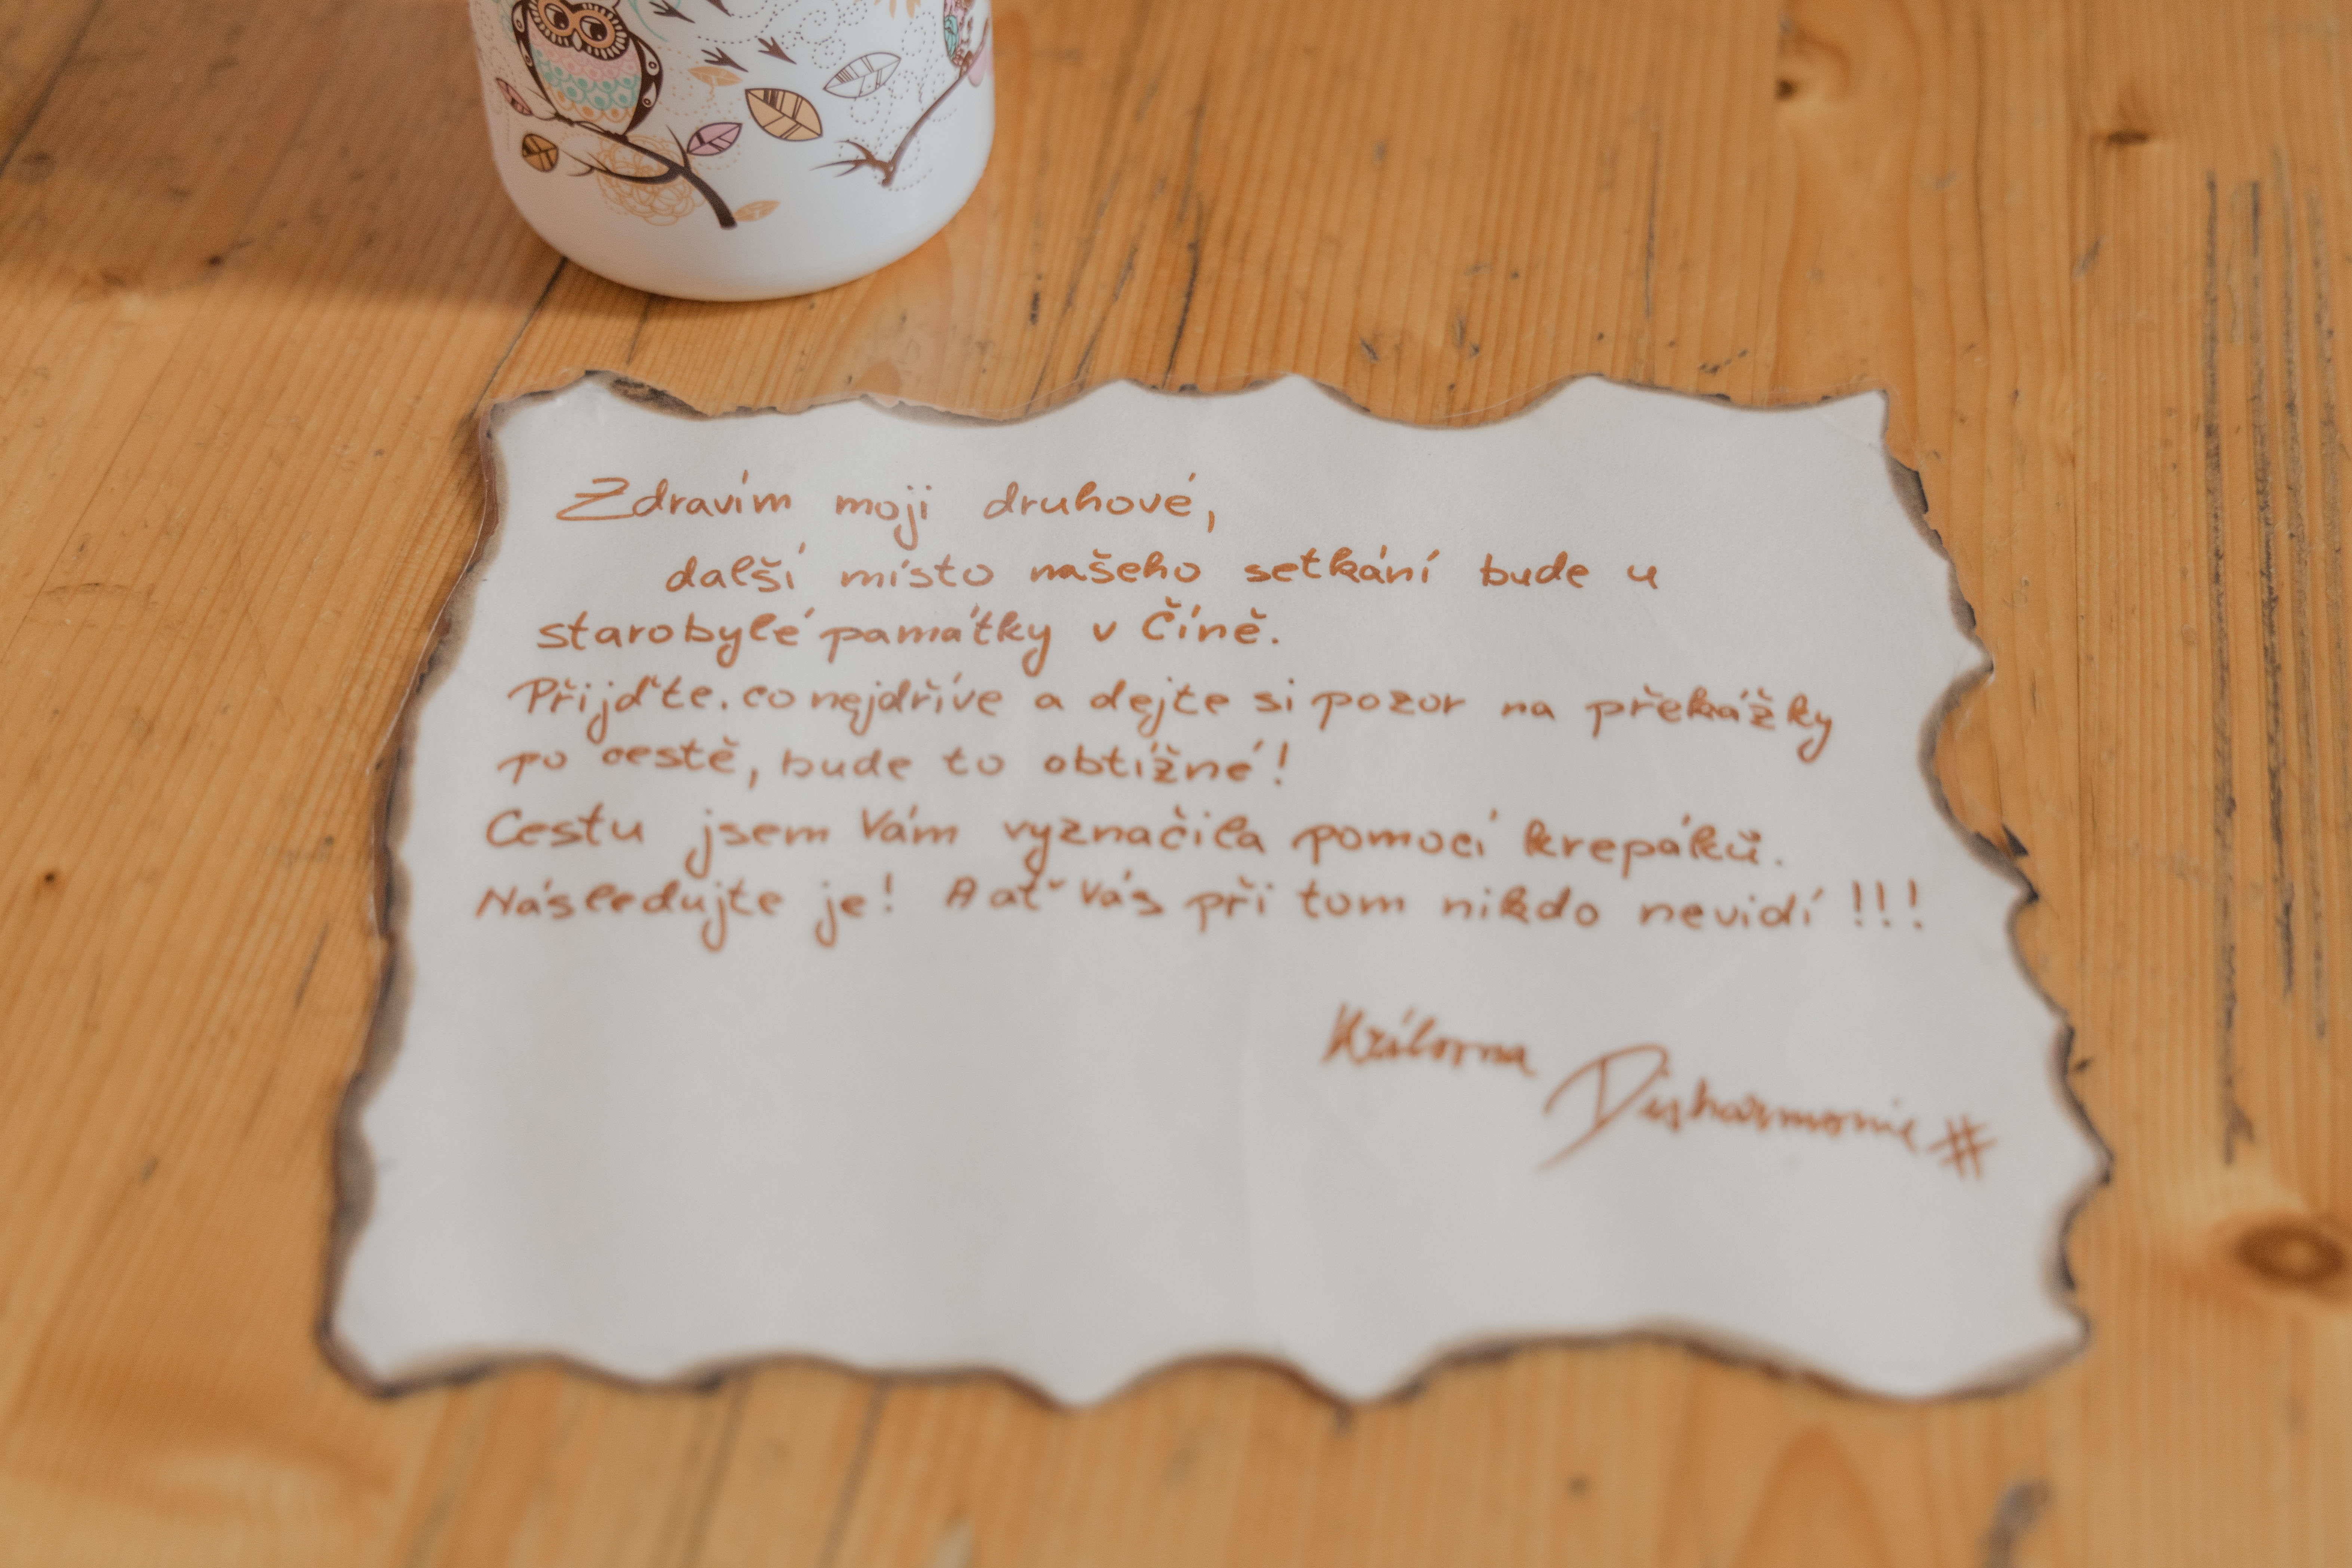 Zdravím moji druhové,
další místo našeho setkání bude u
starobylé památky v Číně.
Přijďte co nejdříve a dejte si pozor na překážky
po cestě, bude to obtížné!
Cestu jsem Vám vyznačila pomocí krepáků.
Následujte je! A ať Vás při tom nikdo nevidí!!!
Královna
Disharmonie #